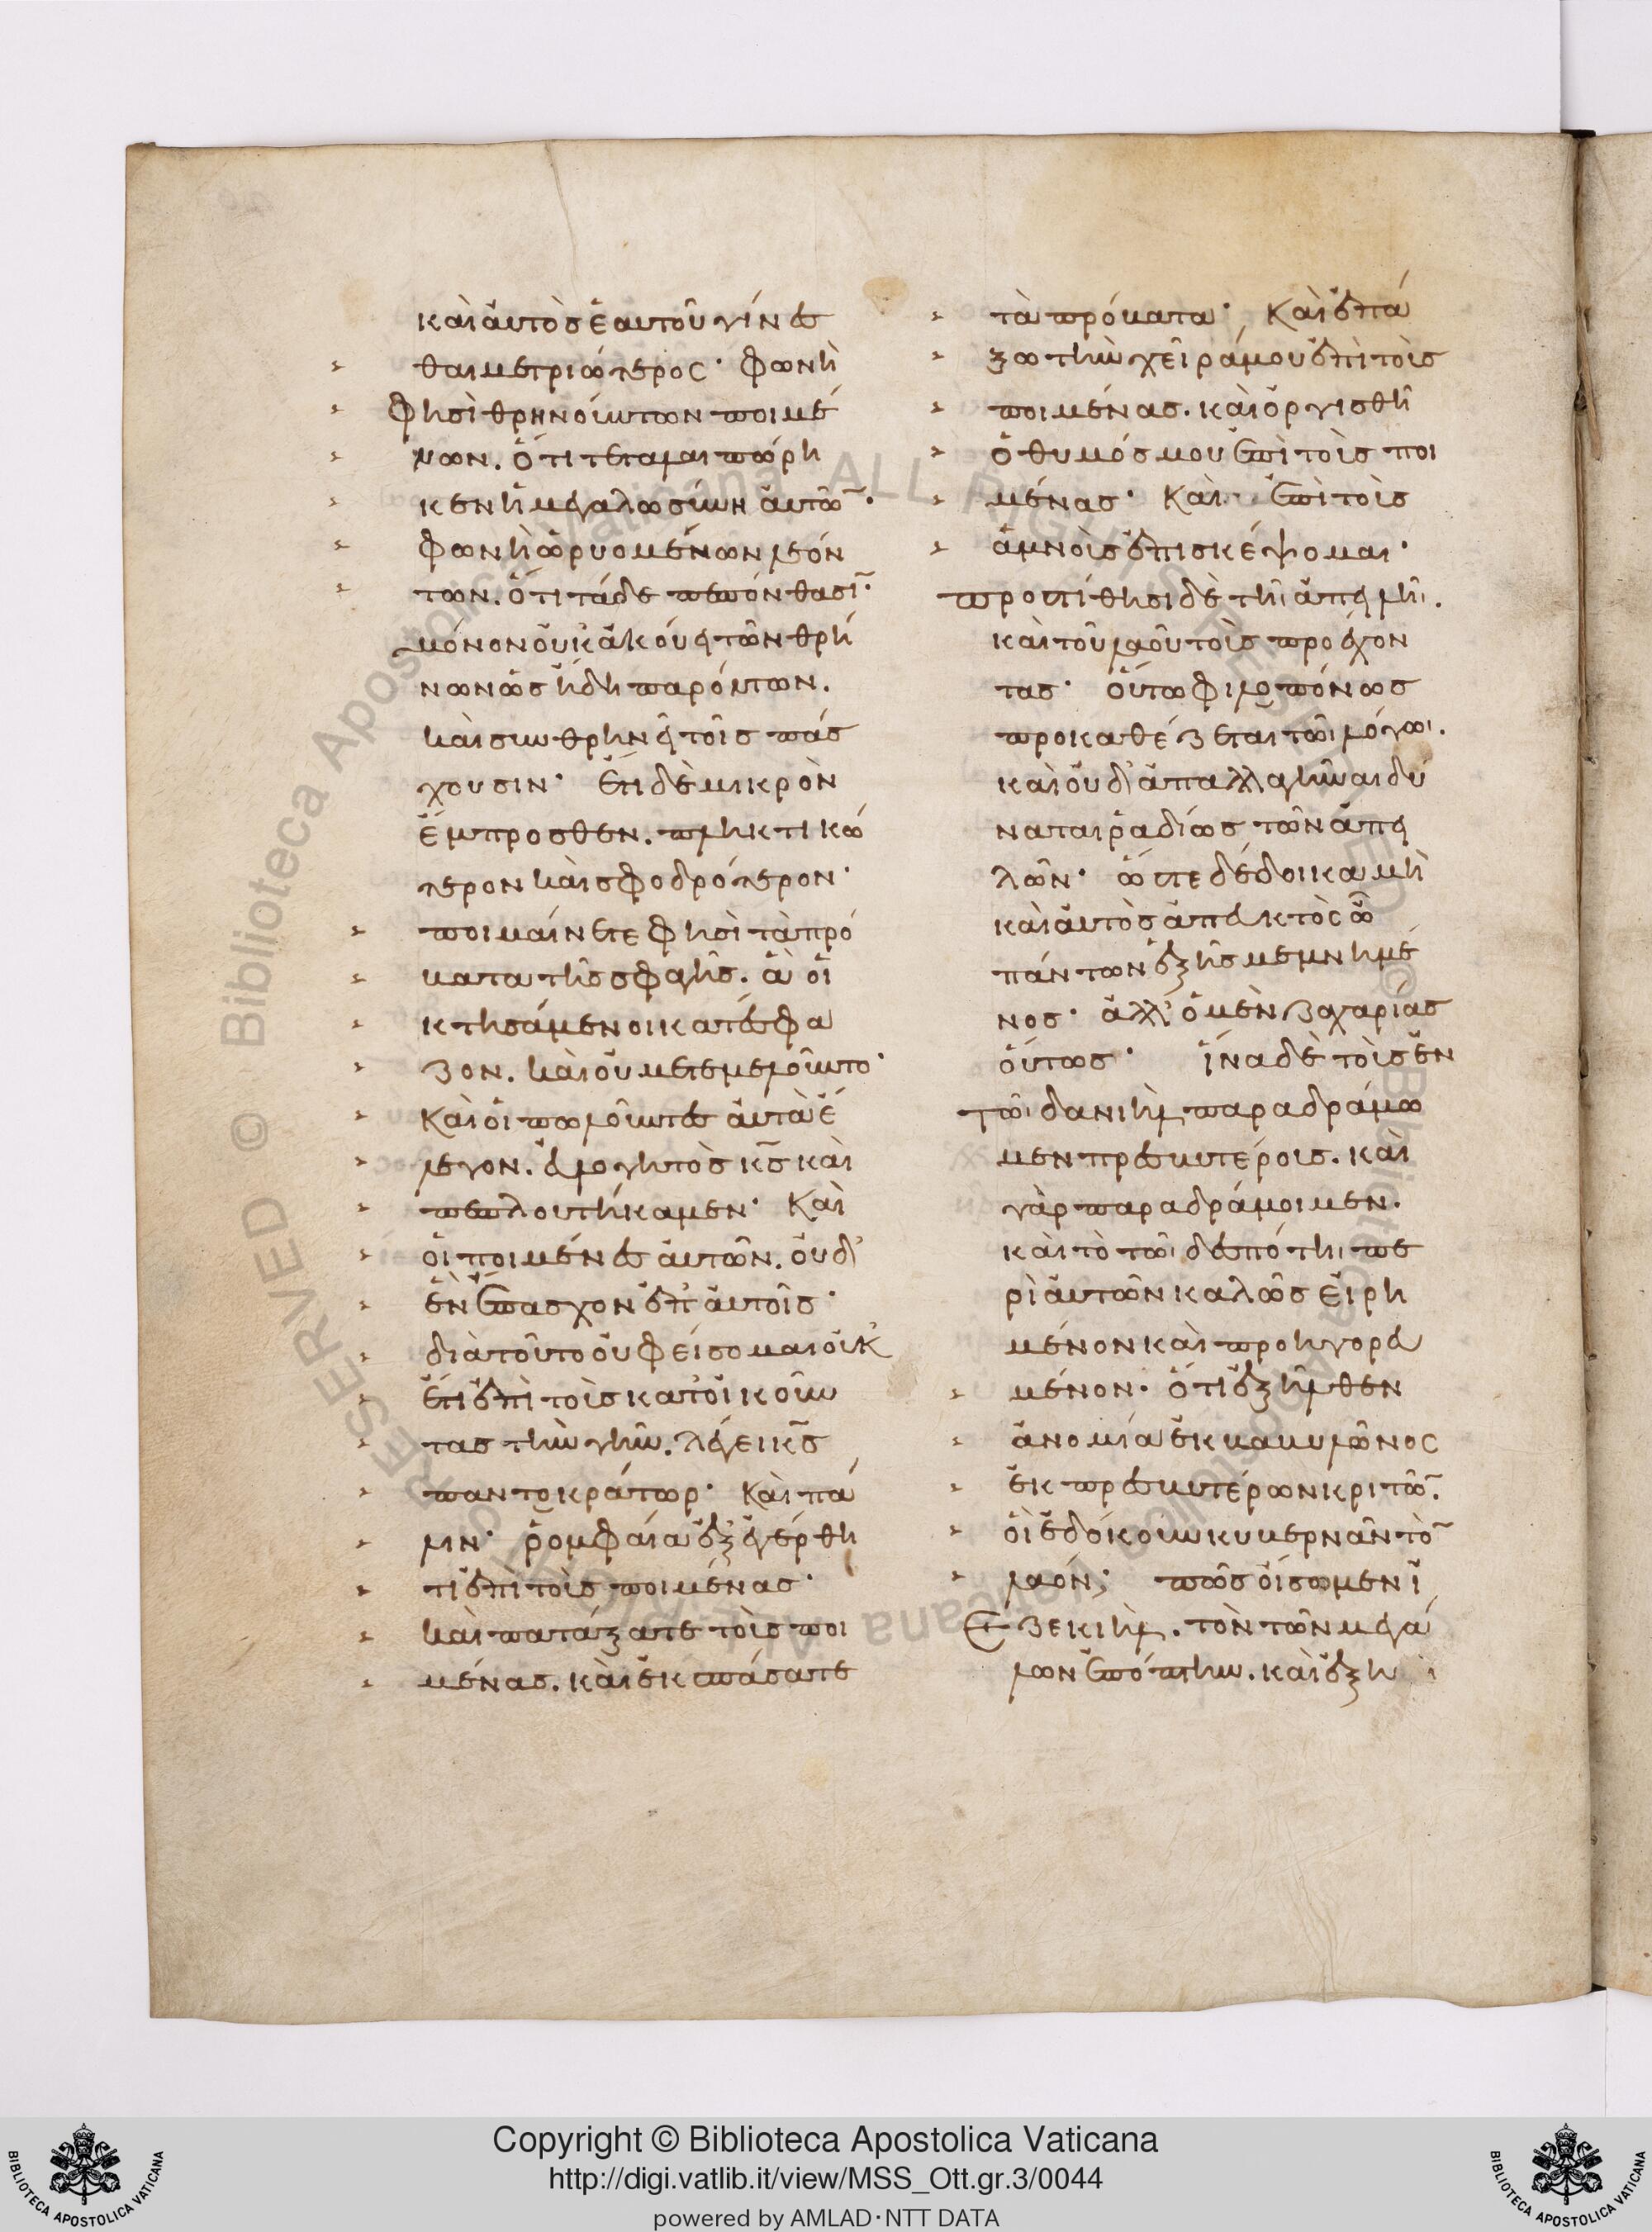 καὶ αὐτὸς ἑαυτοῦ γίνεσ
θαι μετριώτερος· φωνὴ
φησὶ θρηνούντων ποιμέ
νων. ὅτι τεταλαιπώρη
κεν ἡ μεγαλωσύνη αὐτῶ̄·
φωνὴ ὠρυομένων λεόν
των. ὅτι τάδε πεπόνθασῑ·
μόνον οὐκ ἀκούει τῶν θρή
νων ὡς ἤδη παρόντων.
καὶ συνθρηνεῖ τοῖς πάσ
χουσιν· ἔτι δὲ μικρὸν
ἔμπροσθεν. πληκτικώ
τερον καὶ σφοδρότερον·
ποιμαίνετε φησὶ τὰ πρό
βατα τῆς σφαγῆς. ἃ οἱ
κτησάμενοι κατέσφα
ζον. καὶ οὐ μετεμέλοντο·
καὶ οἱ πωλοῦντες αὐτὰ ἔ
λεγον. εὐλογητὸς κ̄ς καὶ
πεπλουτήκαμεν· Καὶ
οἱ ποιμένες αὐτῶν. οὐδ'
ἐν ἔπασχον ἐπ' αὐτοῖς·
διὰ τοῦτο οὐ φείσομαι οὐκ
ἔτι ἐπὶ τοὺς κατοικοῦν
τας τὴν γῆν. λέγει κ̄ς
παντοκράτωρ· Καὶ πά
λιν· ῥομφαία ἐξεγέρθη
τι ἐπὶ τοὺς ποιμένας·
καὶ πατάξατε τοὺς ποι
μένας. καὶ ἐκσπάσατε
τὰ πρόβατα· Καὶ ἐπά
ξω τὴν χεῖρά μου ἐπὶ τοὺς
ποιμένας. καὶ ὀργισθῆ
ὁ θυμός μου ἐπὶ τοὺς ποι
μένας· Καὶ ἐπὶ τοὺς
ἀμνοὺς ἐπισκέψομαι·
προστίθησι δὲ τῆι ἀπειλῆι.
καὶ τοῦ λαοῦ τοὺς προέχον
τας· οὕτω φιλοπόνως
προκαθέζεται τῶι λόγωι.
καὶ οὐδ' ἀπαλλαγῆναι δύ
ναται ῥαδίως τῶν ἀπει
λῶν· ὥστε δέδοικα μὴ
καὶ αὐτὸς ἀπευκτὸς ὦ
πάντων ἑξῆς μεμνημέ
νος· ἀλλ' ὁ μὲν ζαχαρίας
οὕτως· ἵνα δὲ τοὺς ἐν
τῶι δανιὴλ παραδράμω
μεν πρεσβυτέρους. καὶ
γὰρ παραδράμοιμεν.
καὶ τὸ τῶι δεσπότηι πε
ρὶ αὐτῶν καλῶς εἰρη
μένον καὶ προηγορευ
μένον. ὅτι ἐξῆλθεν
ἀνομία ἐκ βαβυλῶνος
ἐκ πρεσβυτέρων κριτῶ̄.
οἳ ἐδόκουν κυβερνᾶν τὸ̄
λαόν; πῶς οἴσωμεν ἰ
Εζεκιὴλ. τὸν τῶν μεγά
λων ἐπόπτην. καὶ ἐξη